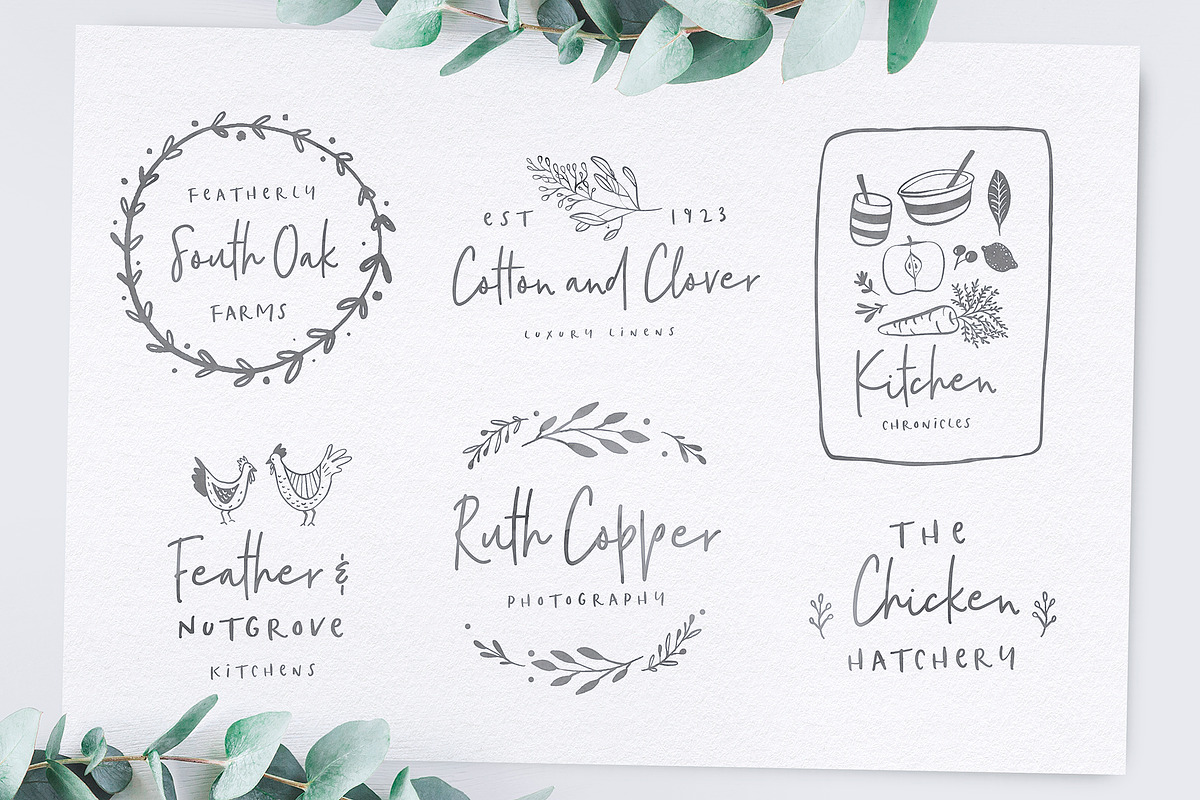 FEATHERLY
South Oak
FARMS
EST 1923
Cotton and Clover
LUXURY LINENS
Kitchen
CHRONICLES
Feather &
NUTGROVE
KITCHENS
Ruth Copper
PHOTOGRAPHY
THE
Chicken
HATCHERY